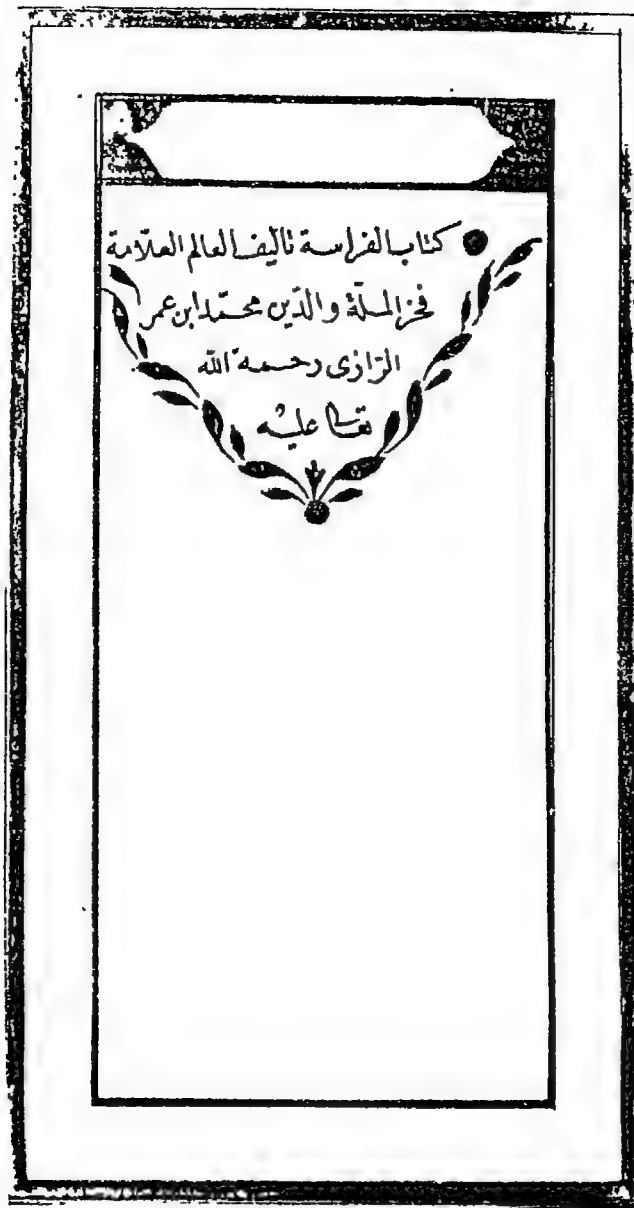 كتاب الفراسة تاليف العالم العلامة
فخر الملّة والدّين محمّد ابن عمر
الرّازى رحمه الله
تعالى عليه